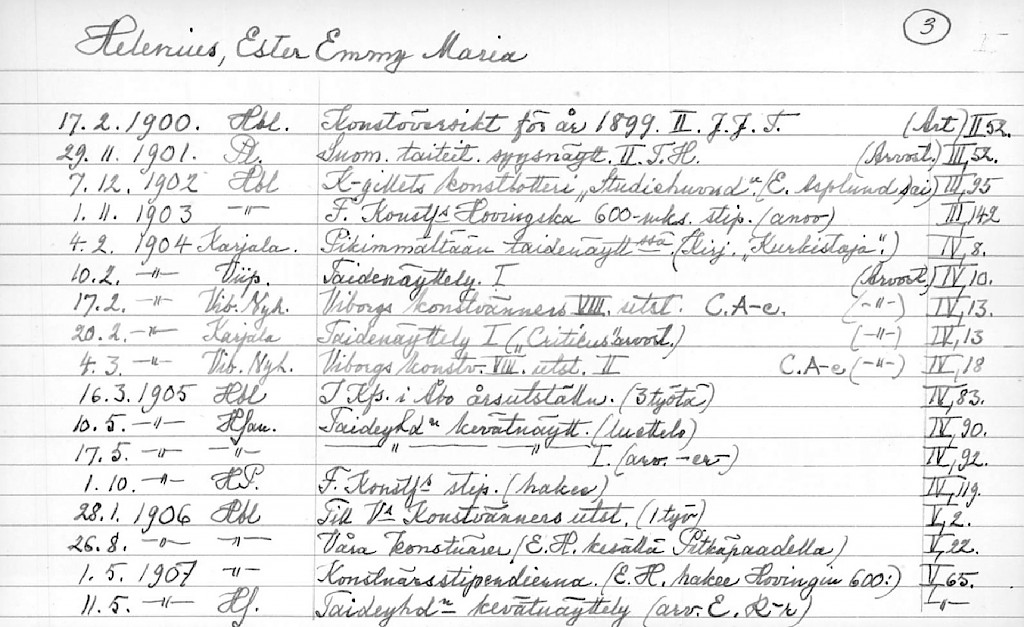 3
Helenius, Ester Emmy Maria
17.2.1900. Hbl. Konstöversikt för år 1899. II. J.J.T. (Art) II 52.
29.11.1901. Pl. Suom. taiteil. syysnäytt. II. T.H. (Arvost.) III, 52.
7.12.1902 Hbl K-gillets konstlotteri „Studiehuvud". (E. Asplund sai) III, 95
1.11.1903 -"- F. Konstfs Hovingska 600-mks. stip. (anoo) III, 142
4.2.1904 Karjala. Pikimmältään taidenäytt.ssä. (Kirj. „Kurkistaja".) IV, 8.
10.2. -"- Viip. Taidenäyttely. I (Arvost.) IV, 10.
17.2. -"- Vib. Nyh. Viborgs konstvänners VIII. utst. C.A-e. (-"-) IV, 13.
20.2. -"- Karjala Taidenäyttely I („Criticus" arvost.) (-"-) IV, 13
4.3. -"- Vib. Nyh. Viborgs konstv. VIII. utst. II C.A-e (-"-) IV, 18
16.3.1905 Hbl I Kfs. i Åbo årsutställn. (3 työtä) IV, 83.
10.5. -"- Hfan. Taideyhdn kevätnäytt. (luettelo) IV, 90.
17.5. -"- -"- -"- -"- I. (arv. -er-) IV, 92.
1.10. -"- HP. F. Konstfs stip. (hakee) IV, 119.
28.1.1906 Hbl Till Va Konstvänners utst. (1 työ) V, 2.
26.8. -"- -"- Våra konstnärer (E.H. kesällä Pitkäpaadella) V, 22.
1.5.1907 -"- Konstnärsstipendierna. (E.H. hakee Hovingin 600:) V, 65.
11.5. -"- Hf. Taideyhdn kevätnäyttely (arv. E. R-r) -"-